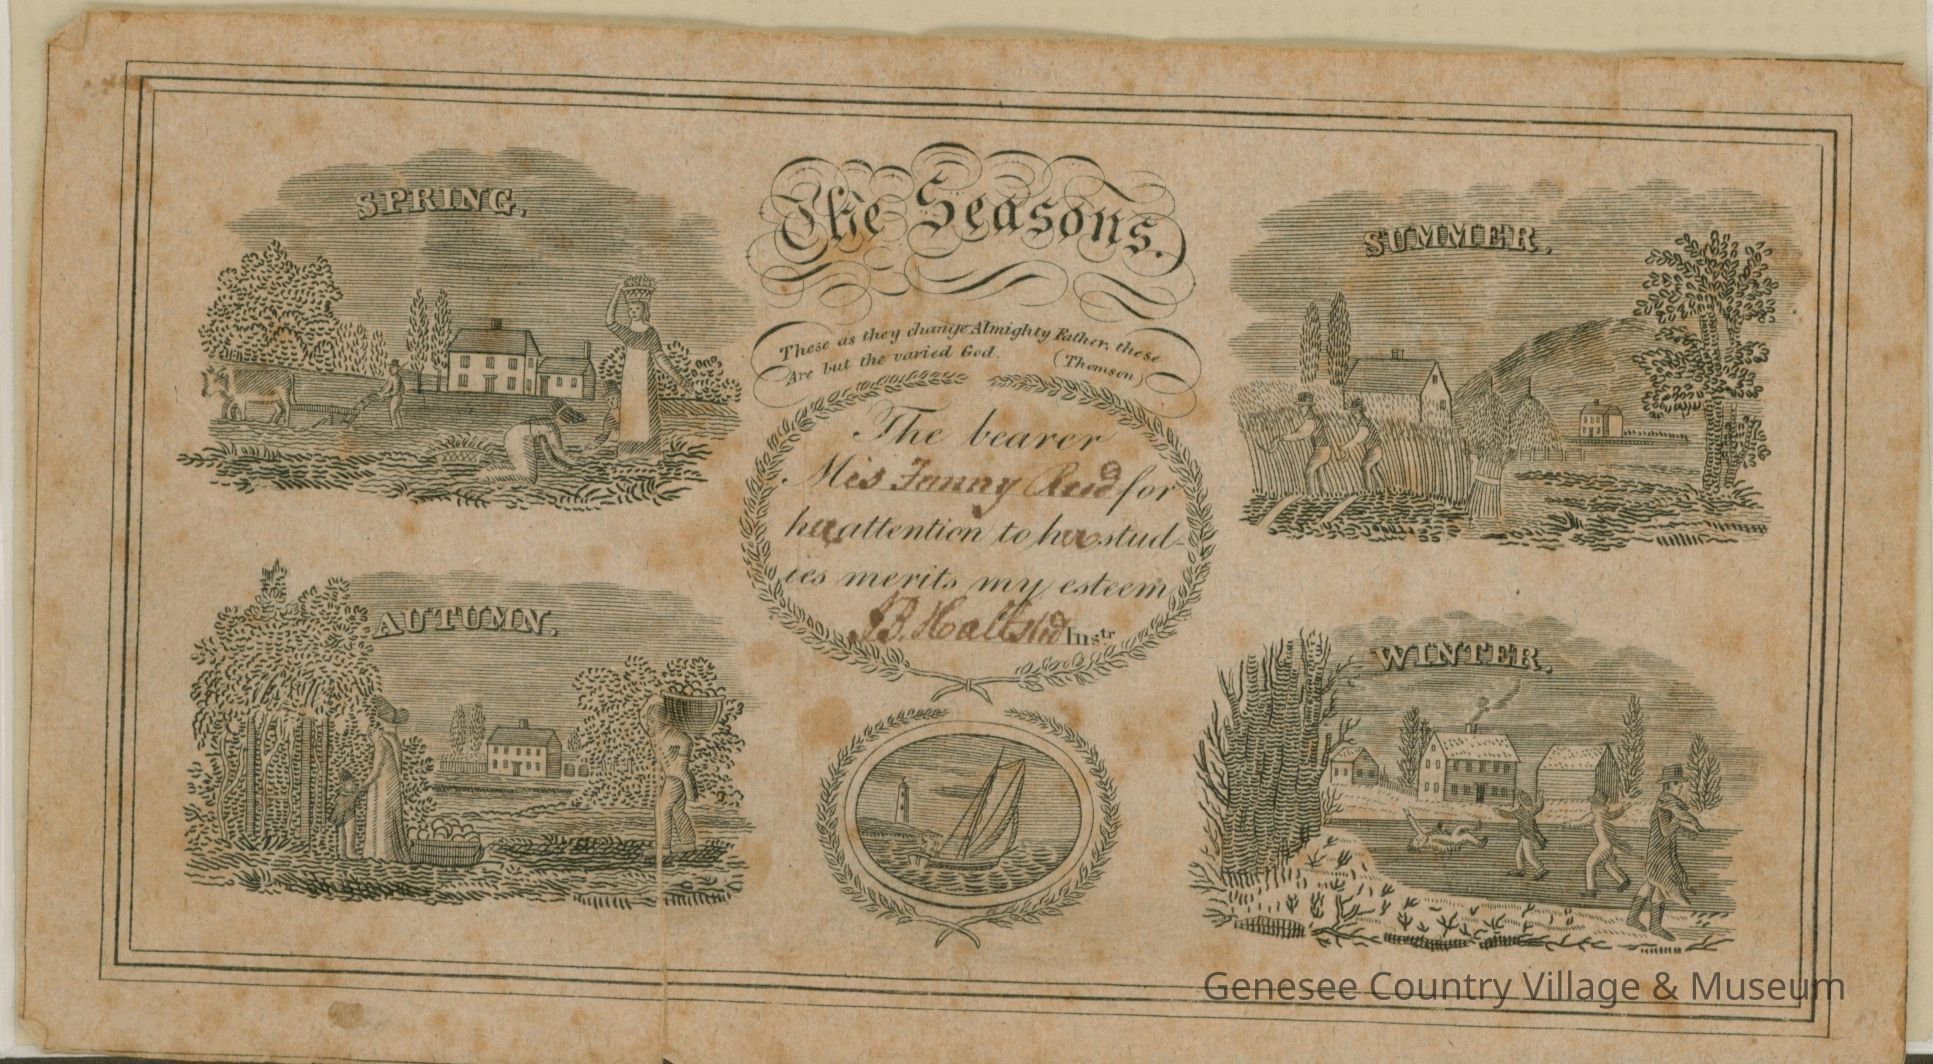 SPRING.
The Seasons.
SUMMER.
These as they change Almighty Father, these
Are but the varied God. (Thomson)
The bearer
Mis Fanny Reid for
her attention to her stud-
ies merits my esteem
JB. Hallsted Instr
AUTUMN.
WINTER.
Genesee Country Village & Museum